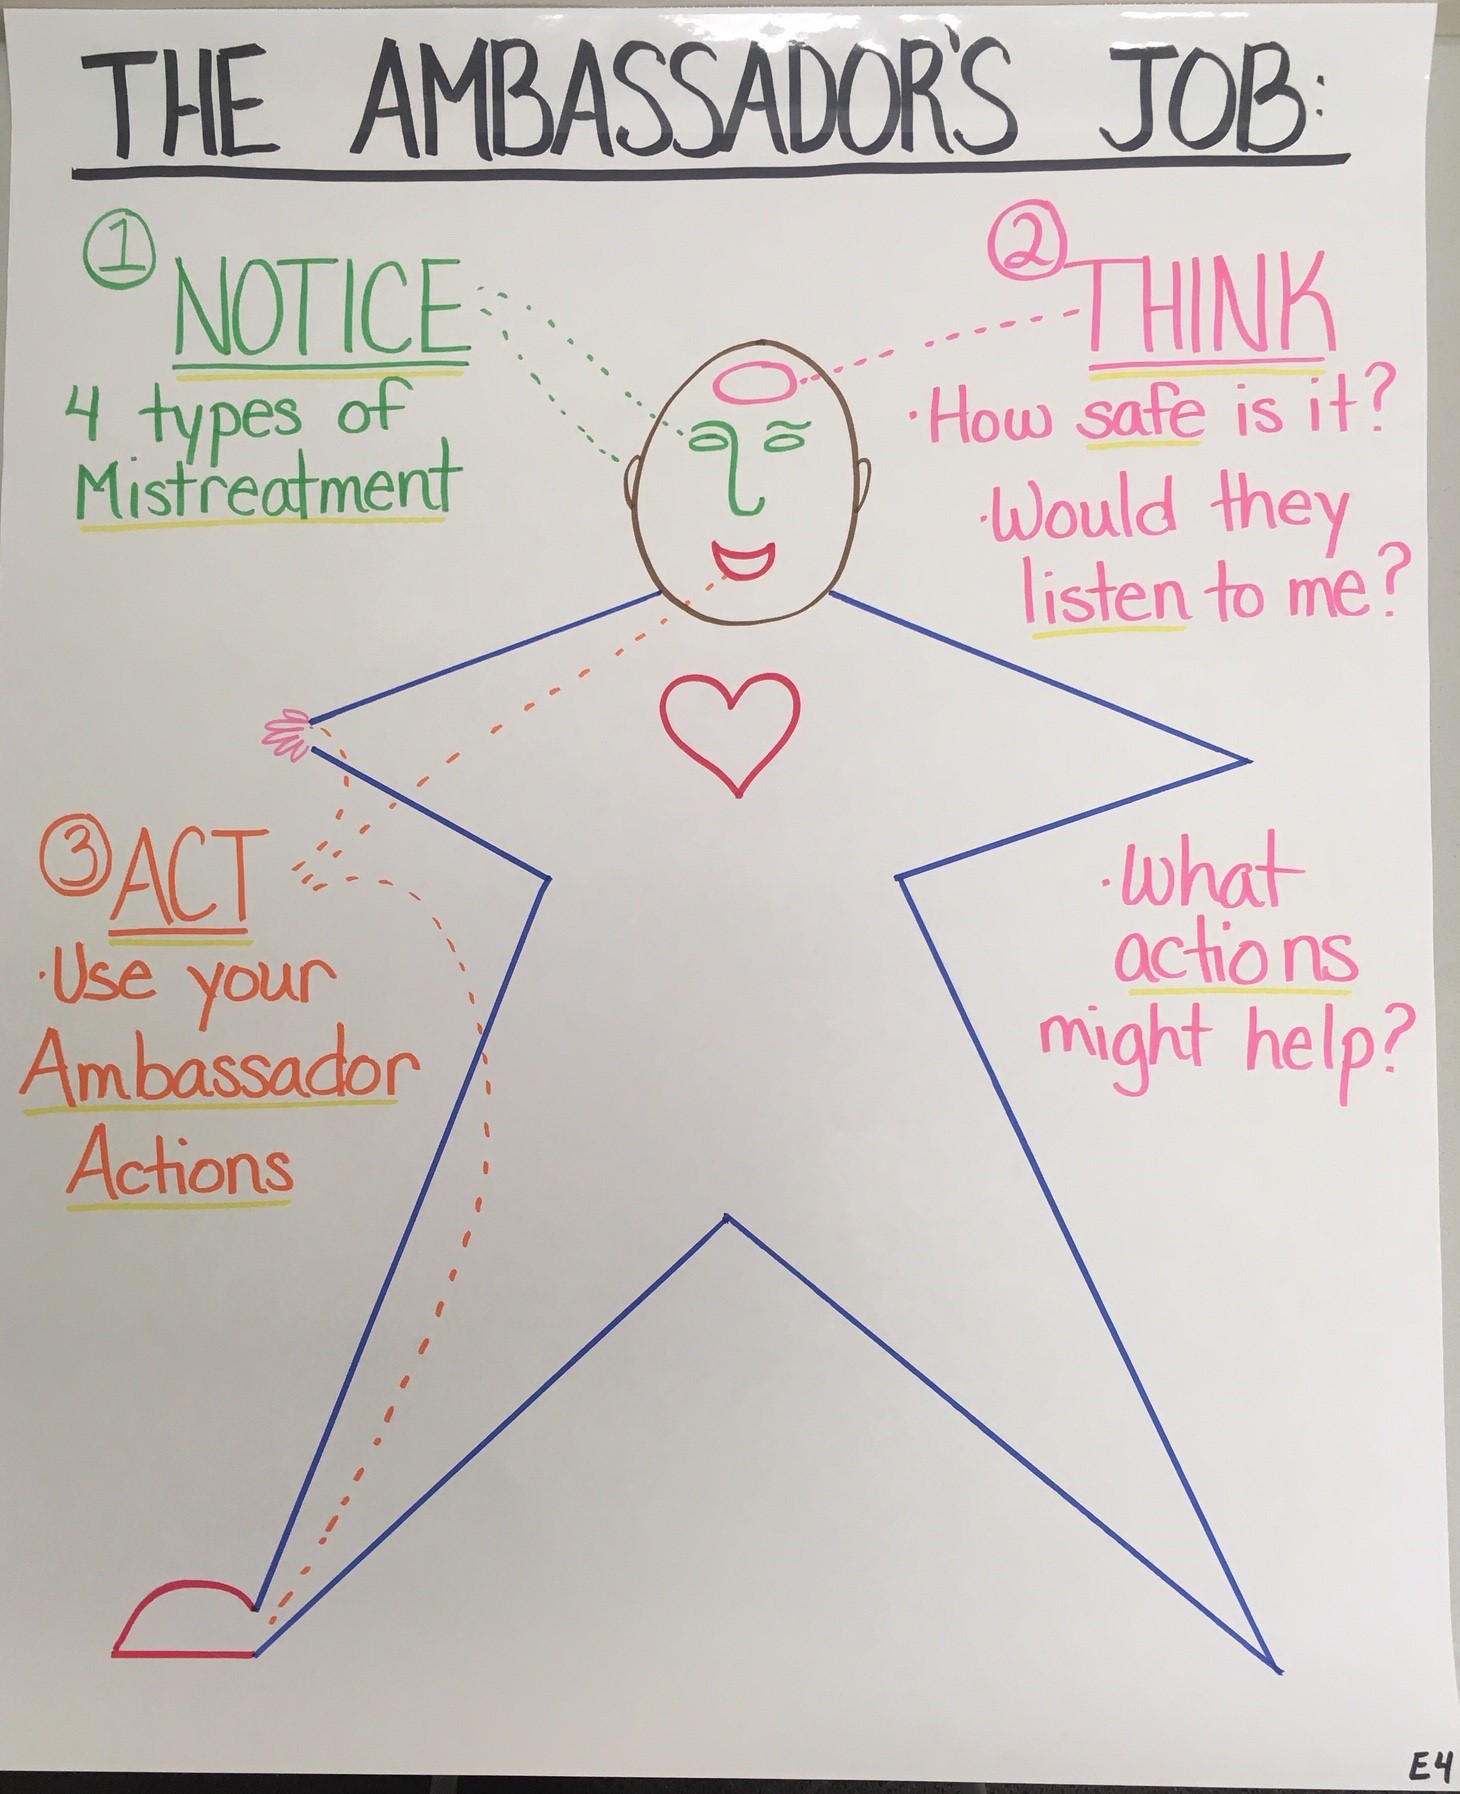 THE AMBASSADOR'S JOB:
1
NOTICE
4 types of
Mistreatment
2
THINK
·How safe is it?
·Would they
listen to me?
·What
actions
might help?
3 ACT
·Use your
Ambassador
Actions
E4